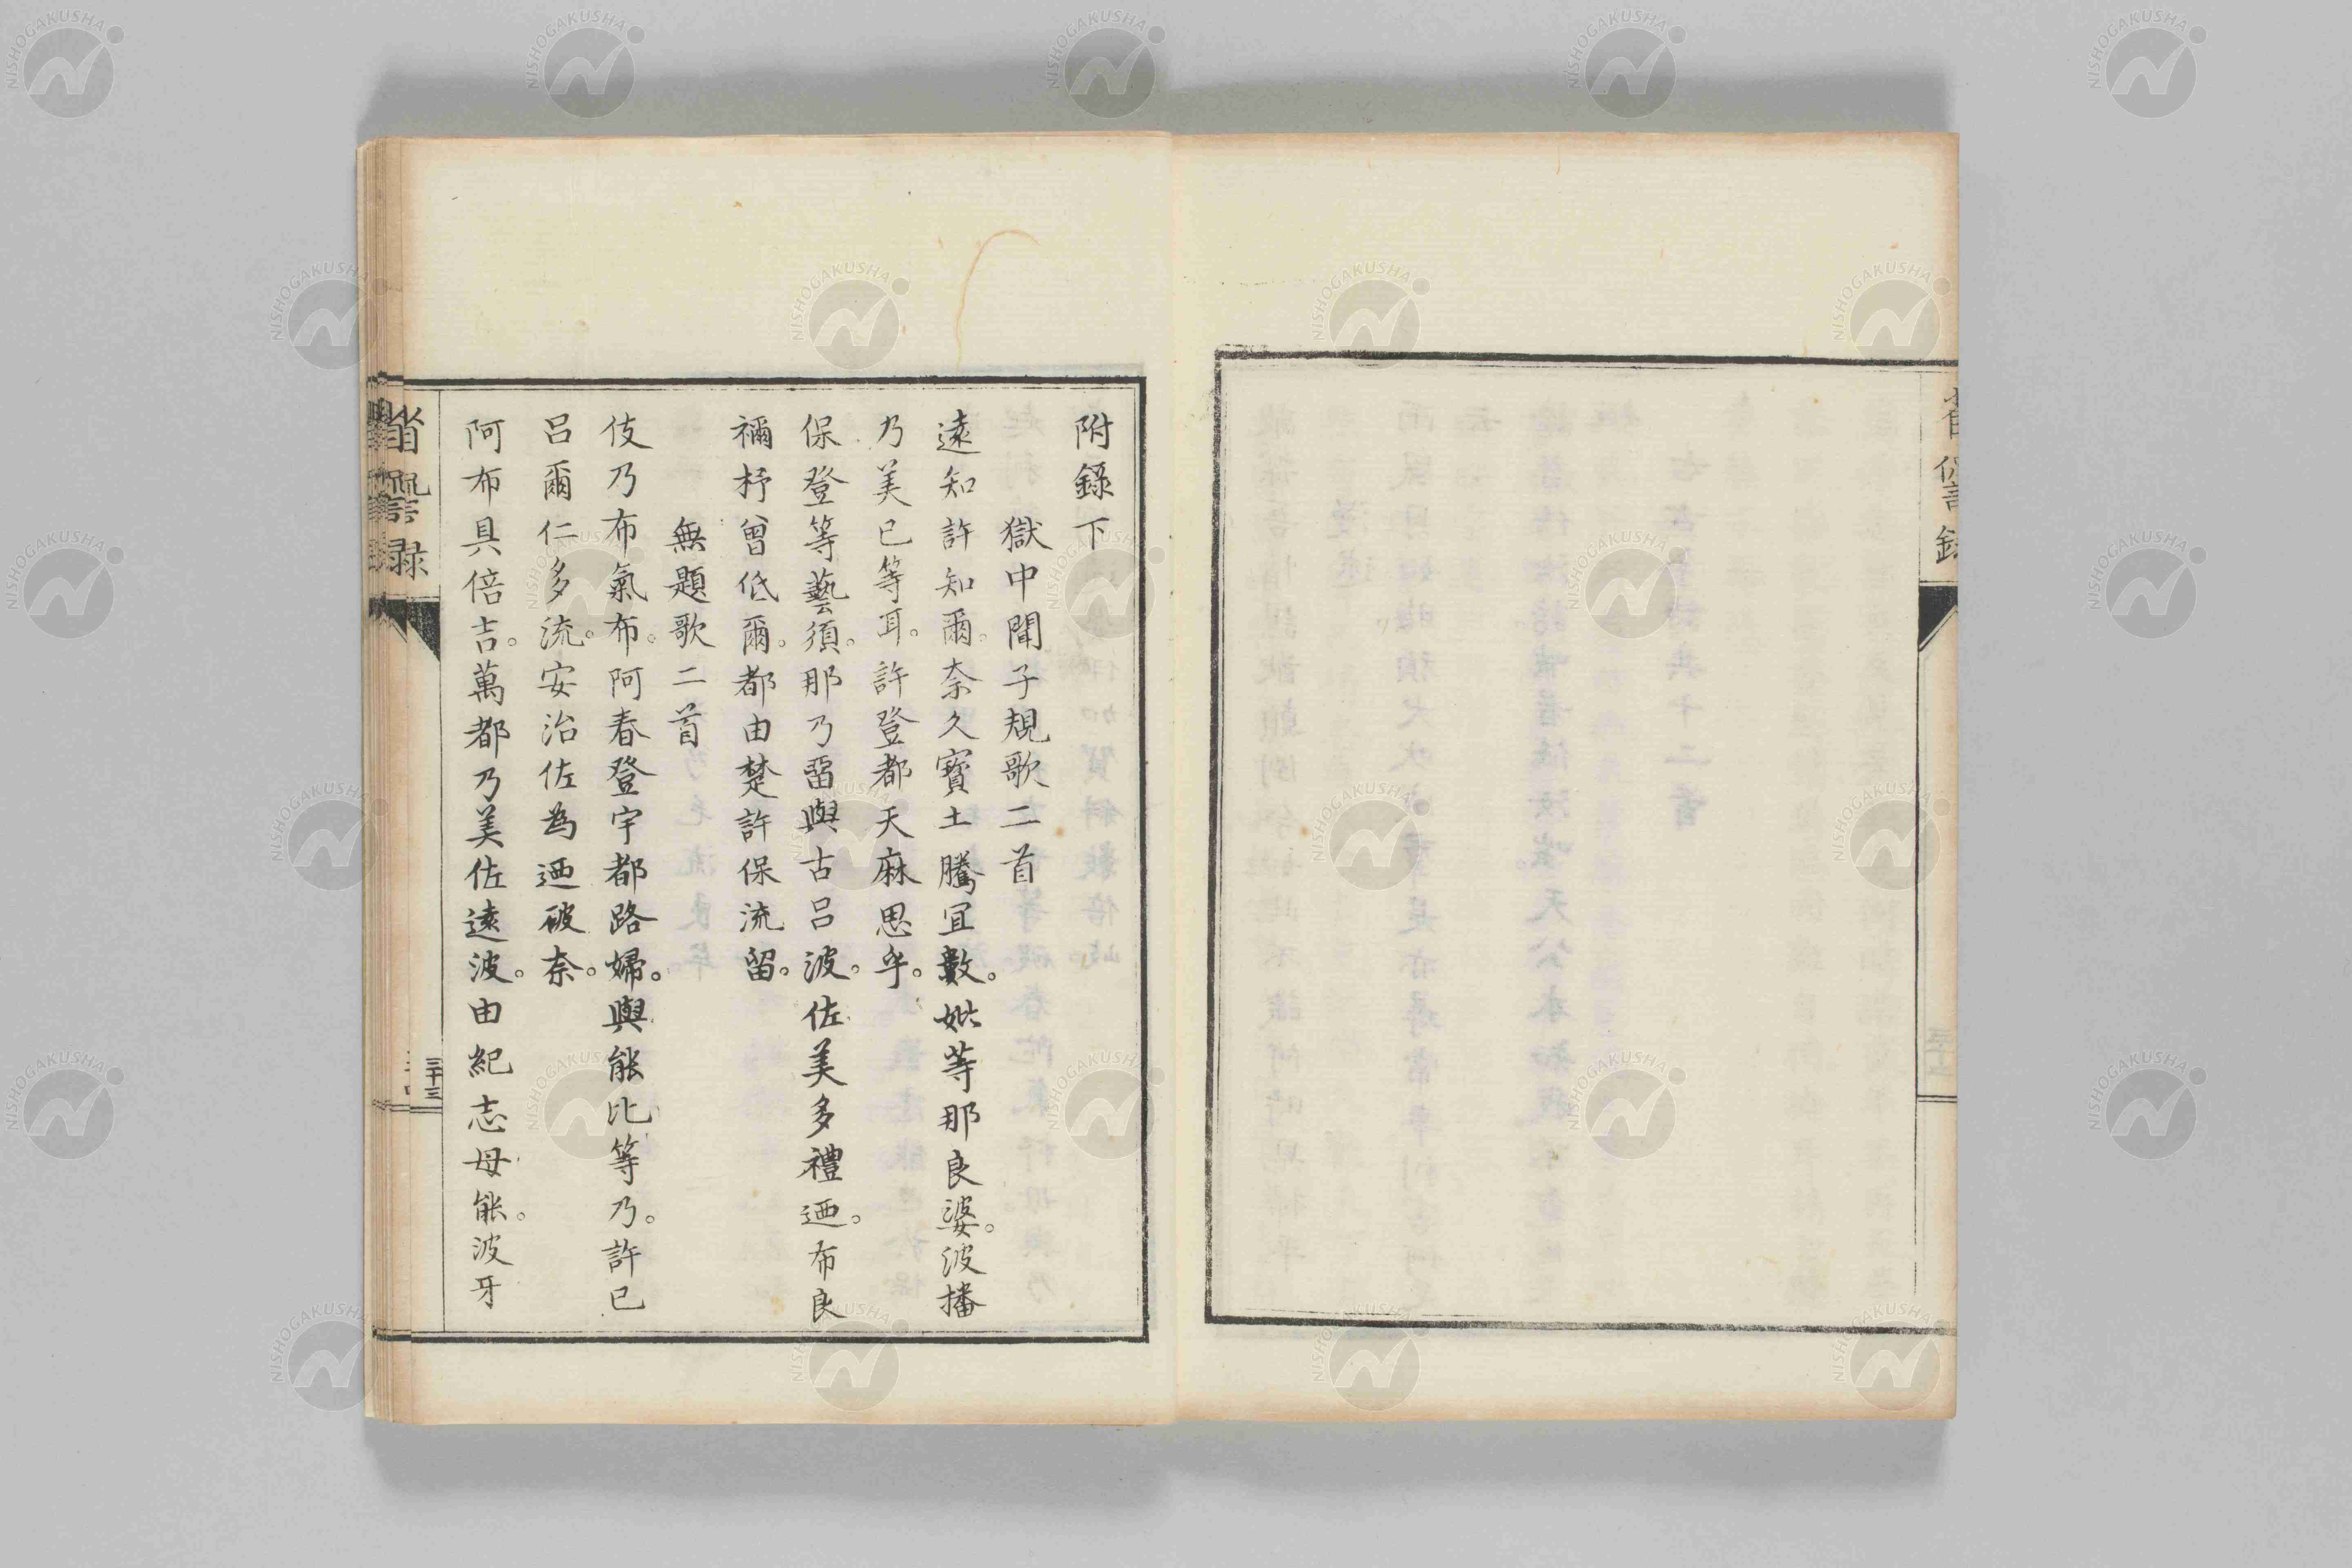 附錄下
獄中聞子規歌二首
遠知許知爾。奈久寳土騰冝數。妣等那良婆。波播
乃美已等耳。許登都天麻思乎。
保登等藝須。那乃畱與古呂波。佐美多禮迺。布良
禰杼曾低爾。都由楚許保流留。
無題歌二首
伎乃布氣布。阿春登宇都路婦。與能比等乃。許已
呂爾仁多流。安治佐為迺破奈。
阿布具倍吉。萬都乃美佐遠波。由紀志母能。波牙
省諐録
三十三
NISHOGAKUSHA